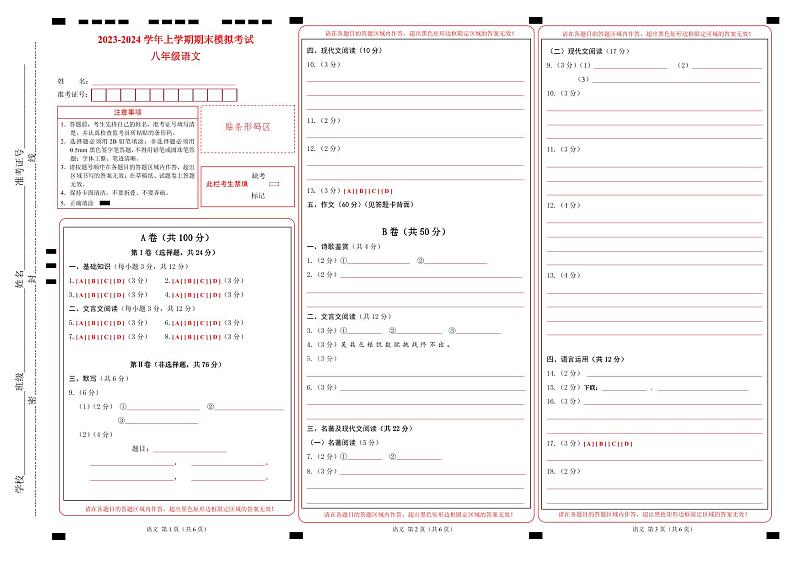 学校
班级
姓名
准考证号
密
封
线
2023-2024 学年上学期期末模拟考试
八年级语文
姓 名:
准考证号:
注意事项
1.答题前，考生先将自己的姓名，准考证号填写清
楚，并认真检查监考员所粘贴的条形码。
2.选择题必须用2B铅笔填涂；非选择题必须用
0.5mm黑色签字笔答题，不得用铅笔或圆珠笔答
题；字体工整、笔迹清晰。
3.请按题号顺序在各题目的答题区域内作答，超出
区域书写的答案无效；在草稿纸、试题卷上答题
无效。
4.保持卡面清洁，不要折叠、不要弄破。
5.正确填涂
贴条形码区
此栏考生禁填
缺考
标记
A 卷（共 100 分）
第Ⅰ卷（选择题，共 24 分）
一、基础知识（每小题 3 分，共 12 分）
1. [A] [B] [C] [D]（3 分） 2. [A] [B] [C] [D]（3 分）
3. [A] [B] [C] [D]（3 分） 4. [A] [B] [C] [D]（3 分）
二、文言文阅读（每小题 3 分，共 12 分）
5. [A] [B] [C] [D]（3 分） 6. [A] [B] [C] [D]（3 分）
7. [A] [B] [C] [D]（3 分） 8. [A] [B] [C] [D]（3 分）
第Ⅱ卷（非选择题，共 76 分）
三、默写（共 6 分）
9.（6 分）
（1）（2 分） ① ②
③
（2）（4 分）
题目：
， ，
， 。
请在各题目的答题区域内作答，超出黑色矩形边框限定区域的答案无效！
语文 第 1 页（共 6 页）
请在各题目的答题区域内作答，超出黑色矩形边框限定区域的答案无效！
四、现代文阅读（10 分）
10.（3 分）
11.（2 分）
12.（2 分）
13.（3 分）[A] [B] [C] [D]
五、作文（60 分）（见答题卡背面）
B 卷（共 50 分）
一、诗歌鉴赏（共 4 分）
1.（2 分）① ②
2.（2 分）
二、文言文阅读（共 12 分）
3.（3 分）① ② ③
4.（3 分）吴 具 先 根 忱 数 欲 挑 战 终 不 出 。
5.（3 分）
6.（3 分）
三、名著及现代文阅读（共 22 分）
（一）名著阅读（5 分）
7.（2 分）① ②
8.（3 分）
请在各题目的答题区域内作答，超出黑色矩形边框限定区域的答案无效！
语文 第 2 页（共 6 页）
请在各题目的答题区域内作答，超出黑色矩形边框限定区域的答案无效！
（二）现代文阅读（17 分）
9.（3 分）（1） （2）
（3）
10.（3 分）
11.（3 分）
12.（4 分）
13.（4 分）
四、语言运用（共 12 分）
14.（2 分）
15.（2 分）下联： ，
16.（3 分）
17.（3 分）[A] [B] [C] [D]
18.（2 分）
请在各题目的答题区域内作答，超出黑色矩形边框限定区域的答案无效！
语文 第 3 页（共 6 页）